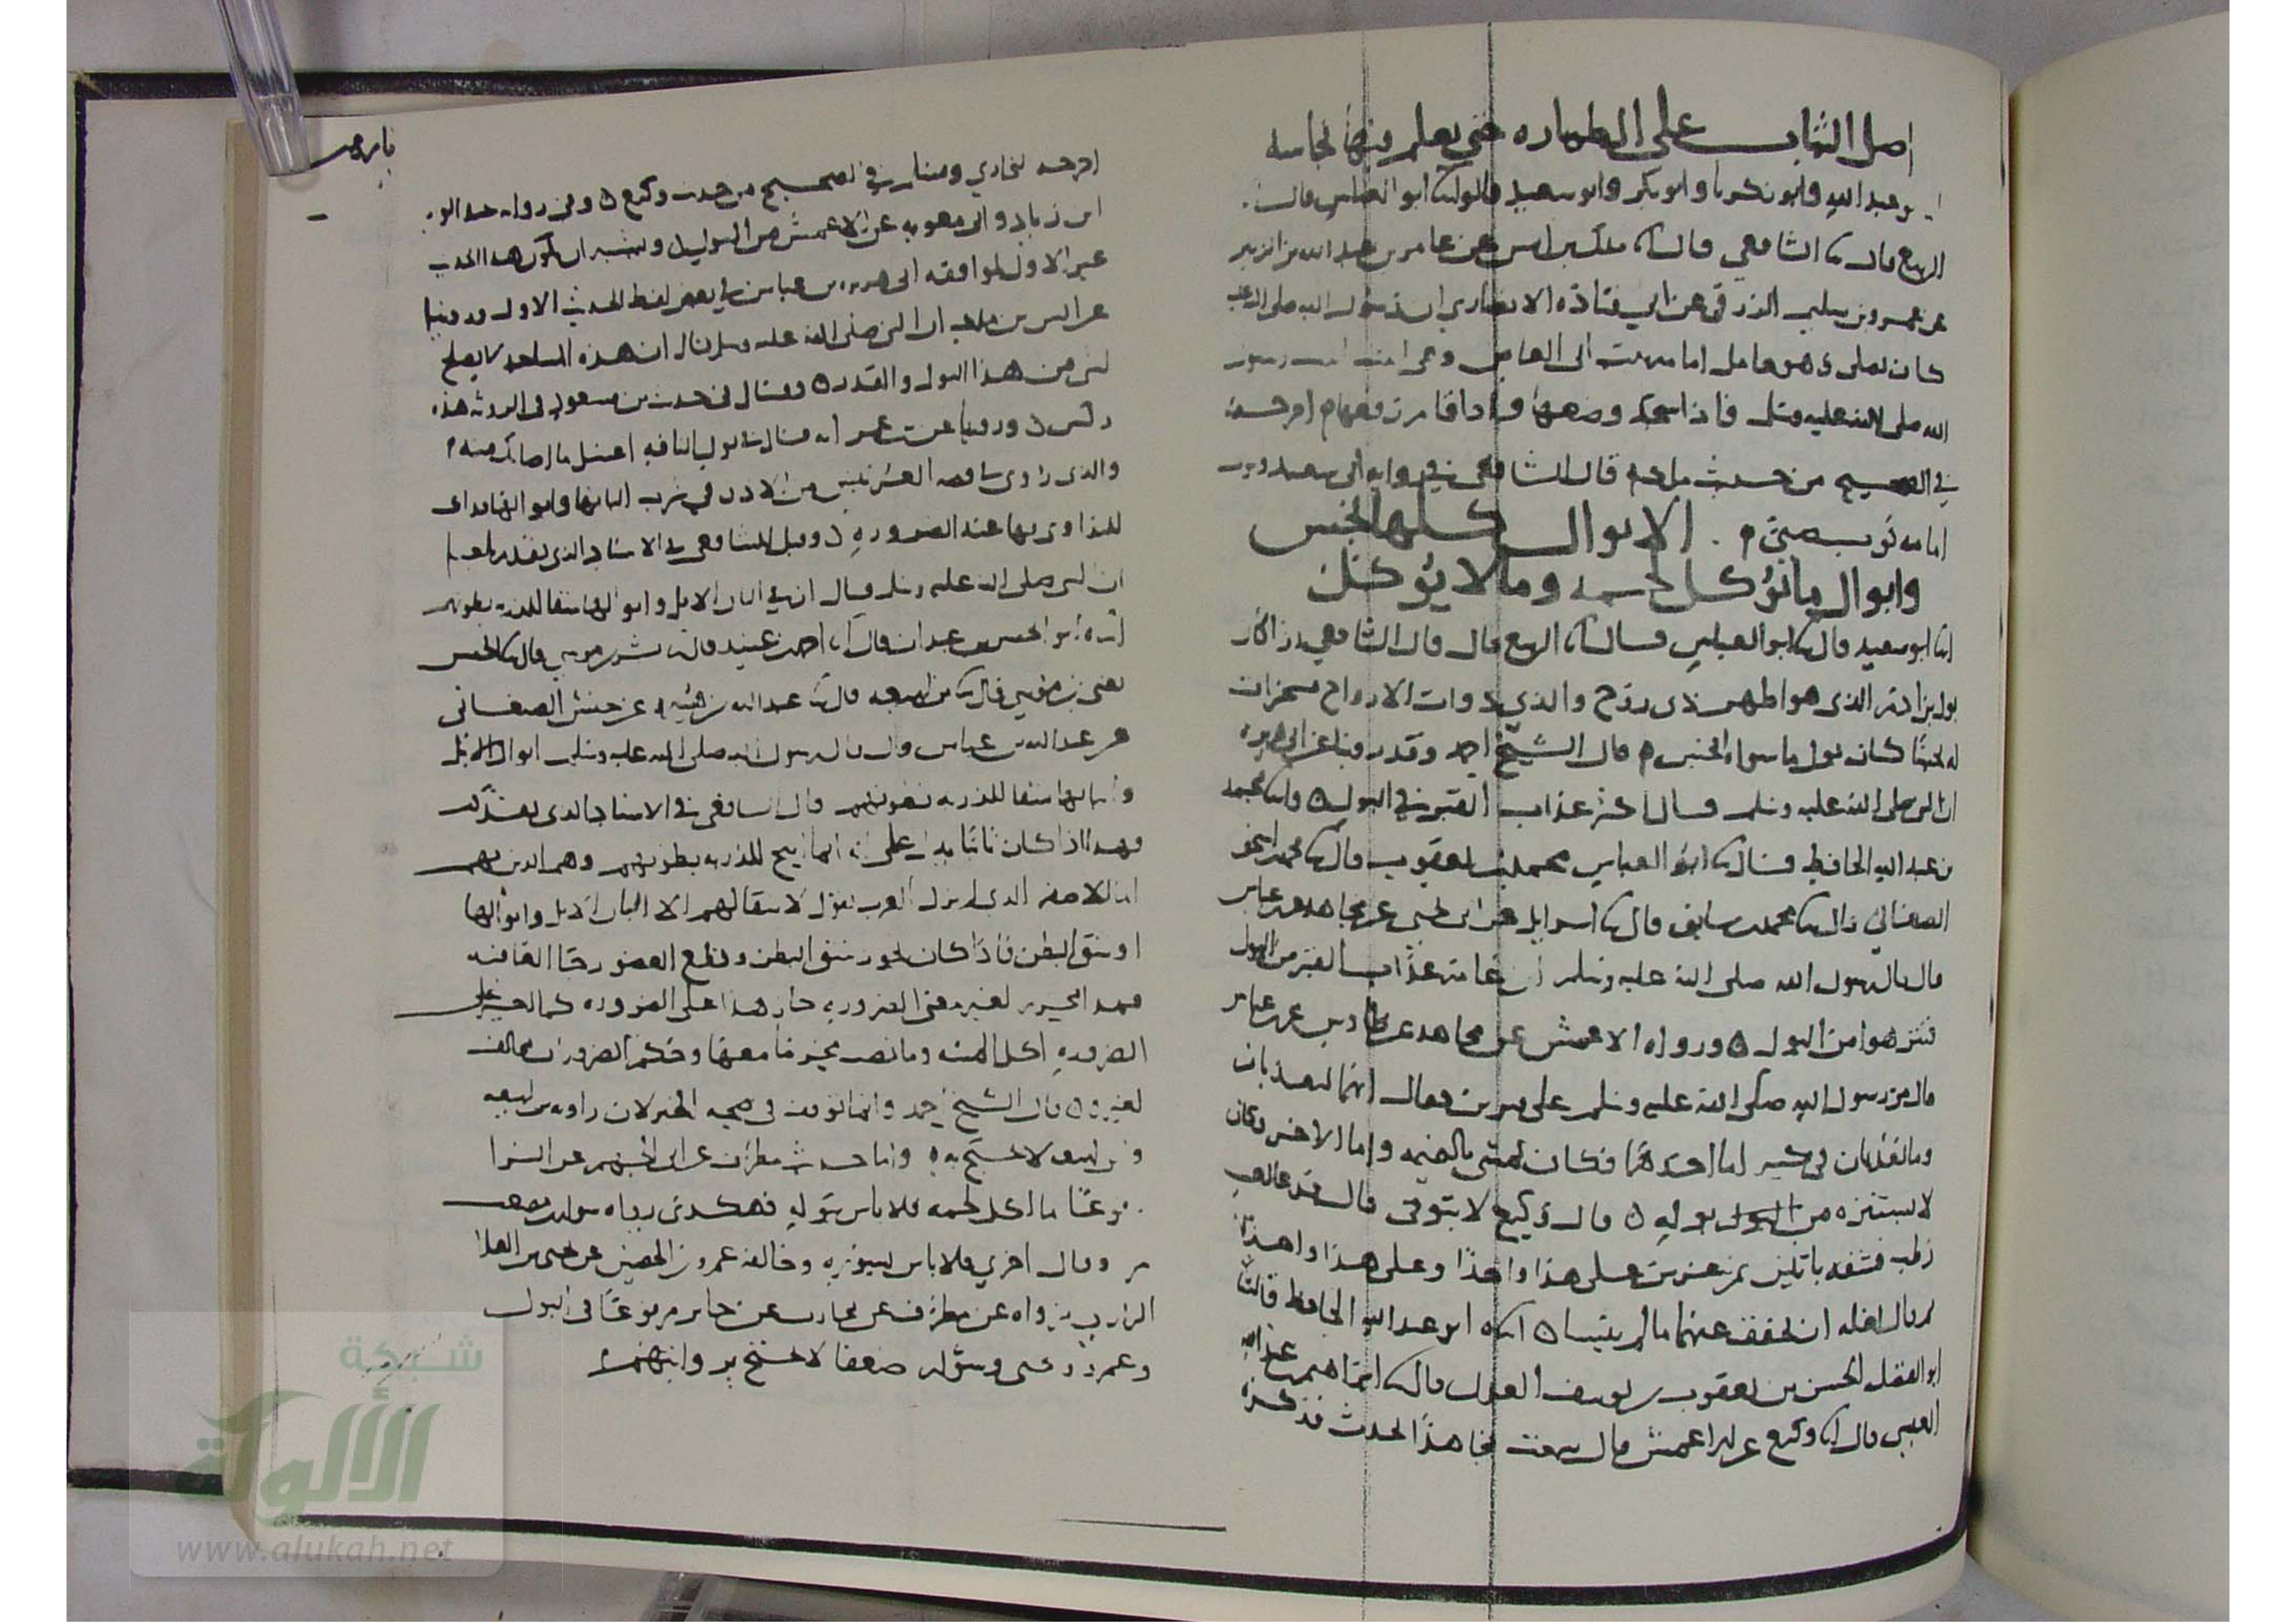 اصل الثياب على الطهاره حتى يعلم فيها نجاسه
عبد الله وابو زكريا وابو بكر وابو سعيد قالوا ابو العباس قال
الربيع قال الشافعي قال مالك بن انس عن عامر بن عبد الله بن الزبير
عن عمرو بن سليم الزرقي عن ابي قتاده الانصاري ان رسول الله صلى الله عليه
كان يصلي وهو حامل امامه بنت ابي العاص رسول
الله صلى الله عليه وسلم فاذا سجد وضعها واذا قام رفعها اخرجه
في الصحيح من حديث مالك قال الشافعي في روايه ابي سعيد وثوب
امامه ثوب صبي الابوال كلها نجس
وابوال ما يوكل لحمه وما لا يوكل
ابو سعيد قال ابو العباس قال الربيع قال قال الشافعي
بول بن ادم الذي هو اطهر ذي روح والذي ذوات الارواح مسخرات
له نجسا كان بول ما سواه انجس قال الشيخ احمد وقد روينا عن ابي هريره
ان النبي صلى الله عليه وسلم قال اكثر عذاب القبر في البول محمد
بن عبد الله الحافظ قال ابو العباس محمد بن يعقوب قال محمد بن اسحق
الصغاني قال محمد بن سابق قال اسرايل عن ابي يحيى عن مجاهد عن ابن عباس
قال قال رسول الله صلى الله عليه وسلم ان عامه عذاب القبر من البول
فتنزهوا من البول ورواه الاعمش عن مجاهد عن طاوس عن ابن عباس
قال مر رسول الله صلى الله عليه وسلم على قبرين فقال انهما ليعذبان
وما يعذبان في كبير اما احدهما فكان يمشي بالنميمه واما الاخر فكان
لا يستنزه من البول بوله قال وكيع لا يتوقى قال فدعا بعسيب
رطب فشقه باثنين ثم غرس على هذا واحدا وعلى هذا واحدا
ثم قال لعله ان يخفف عنهما ما لم ييبسا ابو عبد الله الحافظ قال
ابو الفضل الحسن بن يعقوب بن يوسف العدل قال ابراهيم بن عبد الله
العبسي قال وكيع عن الاعمش قال سمعت مجاهدا يحدث فذكره
اخرجه البخاري ومسلم في الصحيح من حديث وكيع وفي روايه عبد الواحد
ابن زياد وابي معويه عن الاعمش من البول ويشبه ان يكون هذا الحديث
غير الاول لموافقه ابي هريره بن عباس في بعض لفظ الحديث الاول وروينا
عن انس بن مالك ان النبي صلى الله عليه وسلم قال ان هذه المساجد لا يصلح
لشي من هذا البول والقذر وقال في حديث بن مسعود في الروثه هذه
ركس وروينا عن بن عمر انه قال في بول الناقه اغسل ما اصابك منه
والذي روي في قصه العرنيين من الاذن في شرب البانها وابوالها فذاك
للتداوي بها عند الضروره وقيل للشافعي في الاسناد الذي تقدم
ان النبي صلى الله عليه وسلم قال ان في البان الابل وابوالها شفا للذربه بطونهم
ابو الحسن بن عبدان قال احمد بن عبيد قال بشر بن موسى قال الحسن
يعني بن موسى قال بن لهيعه قال عبد الله بن هبيره عن حنش الصنعاني
عن عبد الله بن عباس قال قال رسول الله صلى الله عليه وسلم ابوال الابل
والبانها شفا للذربه بطونهم قال الشافعي في الاسناد الذي تقدم
فهذا اذا كان ثابتا يدل على انه انما ابيح للذربه بطونهم وهم الذين بهم
الذي لم يزل العرب يقول لا شفا لهم الا البان الابل وابوالها
او شق البطن فاذا كان يجوز شق البطن وقطع العضو رجا العافيه
لغير معنى الضروره جاز هذا على الضروره كما
الضروره اكل الميته وما نص محرما معها وحكم الضرورات مخالف
لغيره قال الشيخ احمد وانما توقف في صحه الخبر لان راويه بن لهيعه
وبن لهيعه لا يحتج به واما حديث مطرف عن ابي الجهم عن البرا
مرفوعا ما اكل لحمه فلا باس ببوله فهكذى رواه سوار بن مصعب
مره وقال اخري فلا باس بسوره وخالفه عمرو بن الحصين عن يحيى بن العلا
الرازي فرواه عن مطرف عن محارب عن جابر مرفوعا في البول
وعمرو ويحيى وسوار ضعفا لا يحتج بروايتهم
شبكة
الألوكة
www.alukah.net